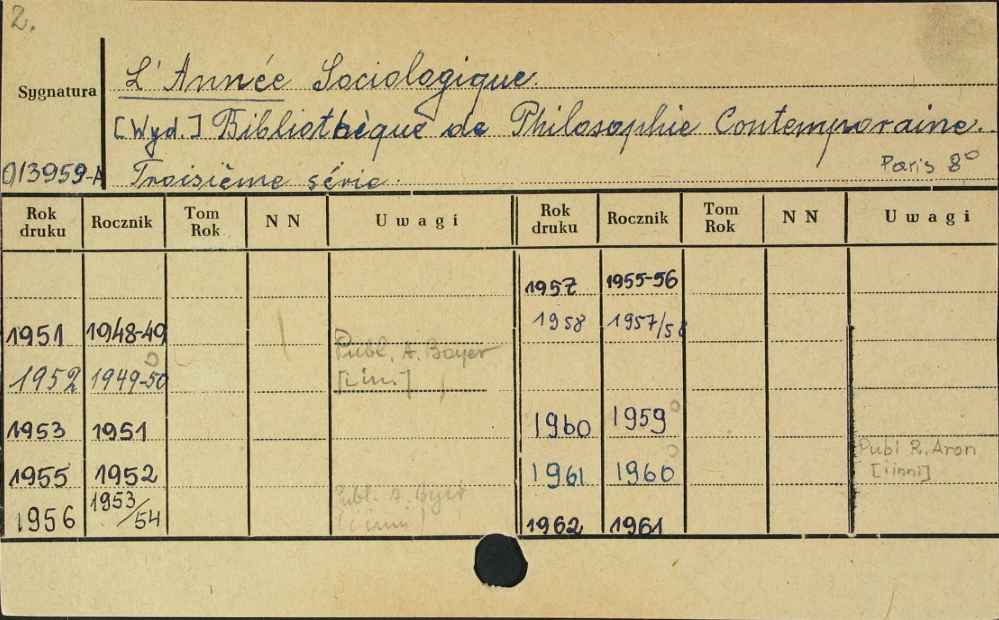 2.
Sygnatura
L'Année Sociologique.
[Wyd.] Bibliothèque de Philosophie Contemporaine.
013959-A
Troisième série.
Paris 8°
Rok druku Rocznik Tom Rok NN Uwagi Rok druku Rocznik Tom Rok NN Uwagi
1957 1955-56
1951 1948-49 1958 1957/58
Publ. A. Bayer
1952 1949-50 [i inni]
1953 1951 1960 1959
Publ R. Aron
1955 1952 1961 1960 [i inni]
1956 1953/54 Publ. A. [i inni] 1962 1961